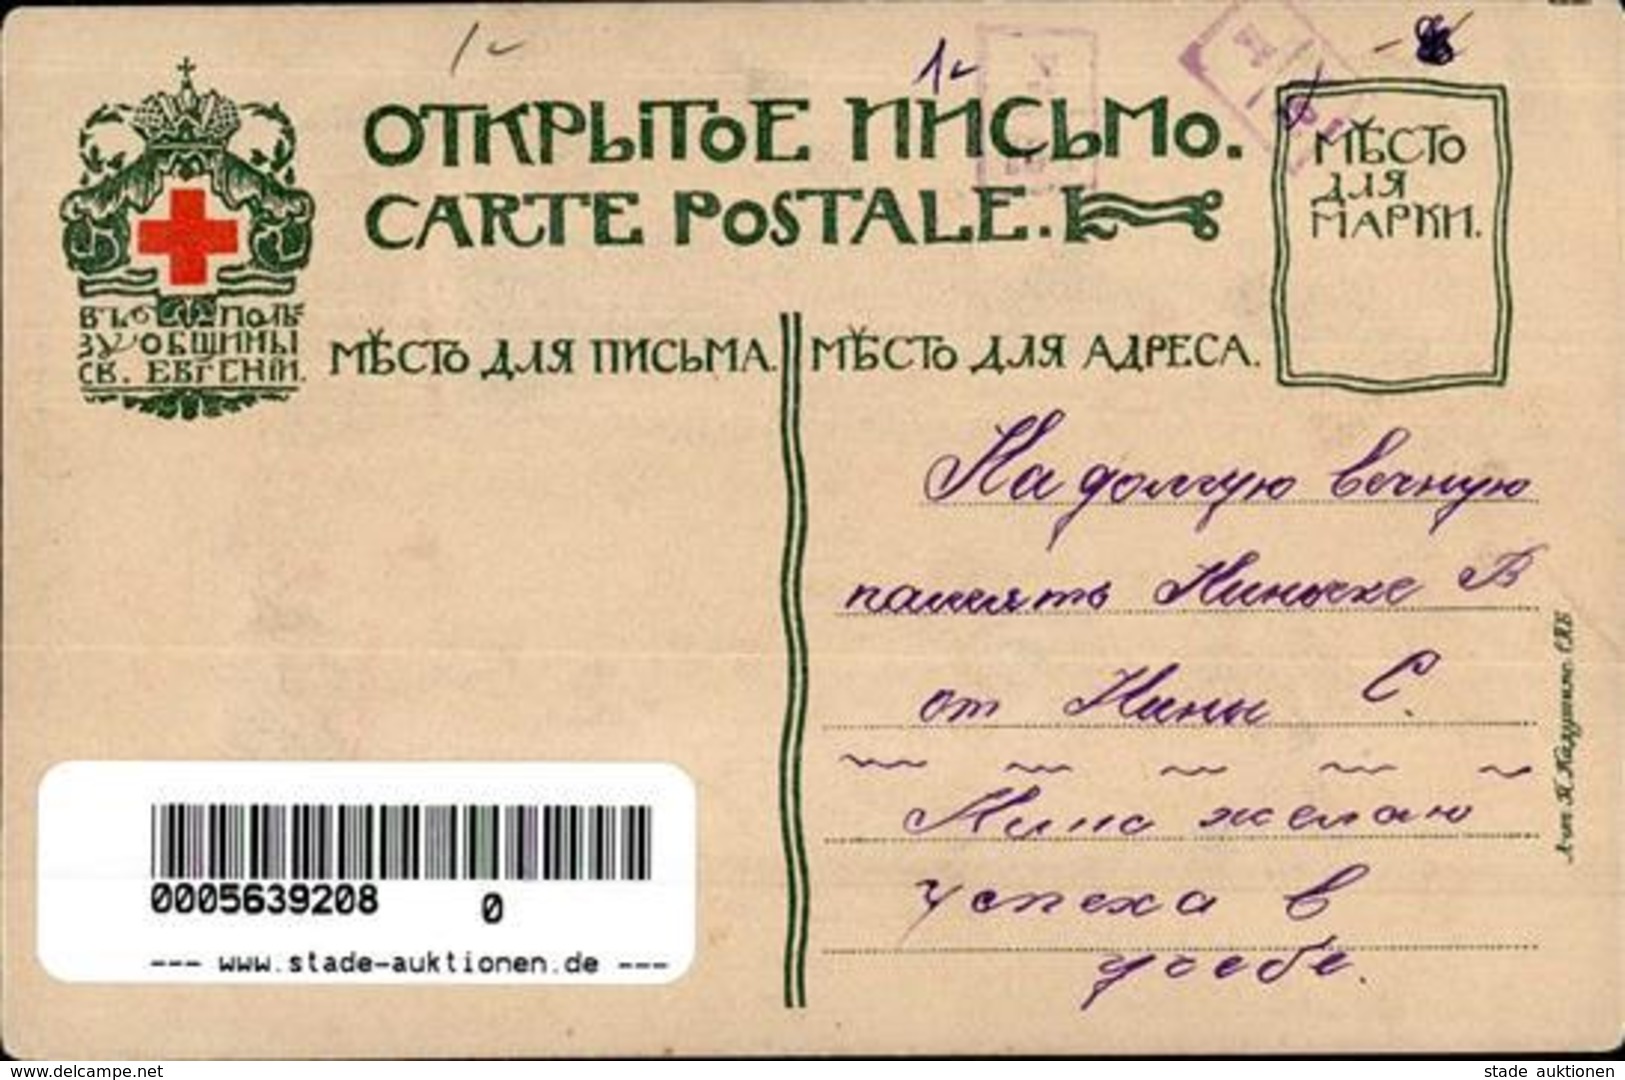 1
1
ОТКРЫТОЕ ПИСЬМО.
CARTE POSTALE.
МѢСТО
ДЛЯ
МАРКИ.
ВЪ ПОЛЬ
ЗУ ОБЩИНЫ
СВ. ЕВГЕНІИ.
МѢСТО ДЛЯ ПИСЬМА.
МѢСТО ДЛЯ АДРЕСА.
На долгую вечную
память Ниночке В
от Нины С.
Нина желаю
успеха в
учебе.
0005639208 0
--- www.stade-auktionen.de ---
www.delcampe.net
stade auktionen